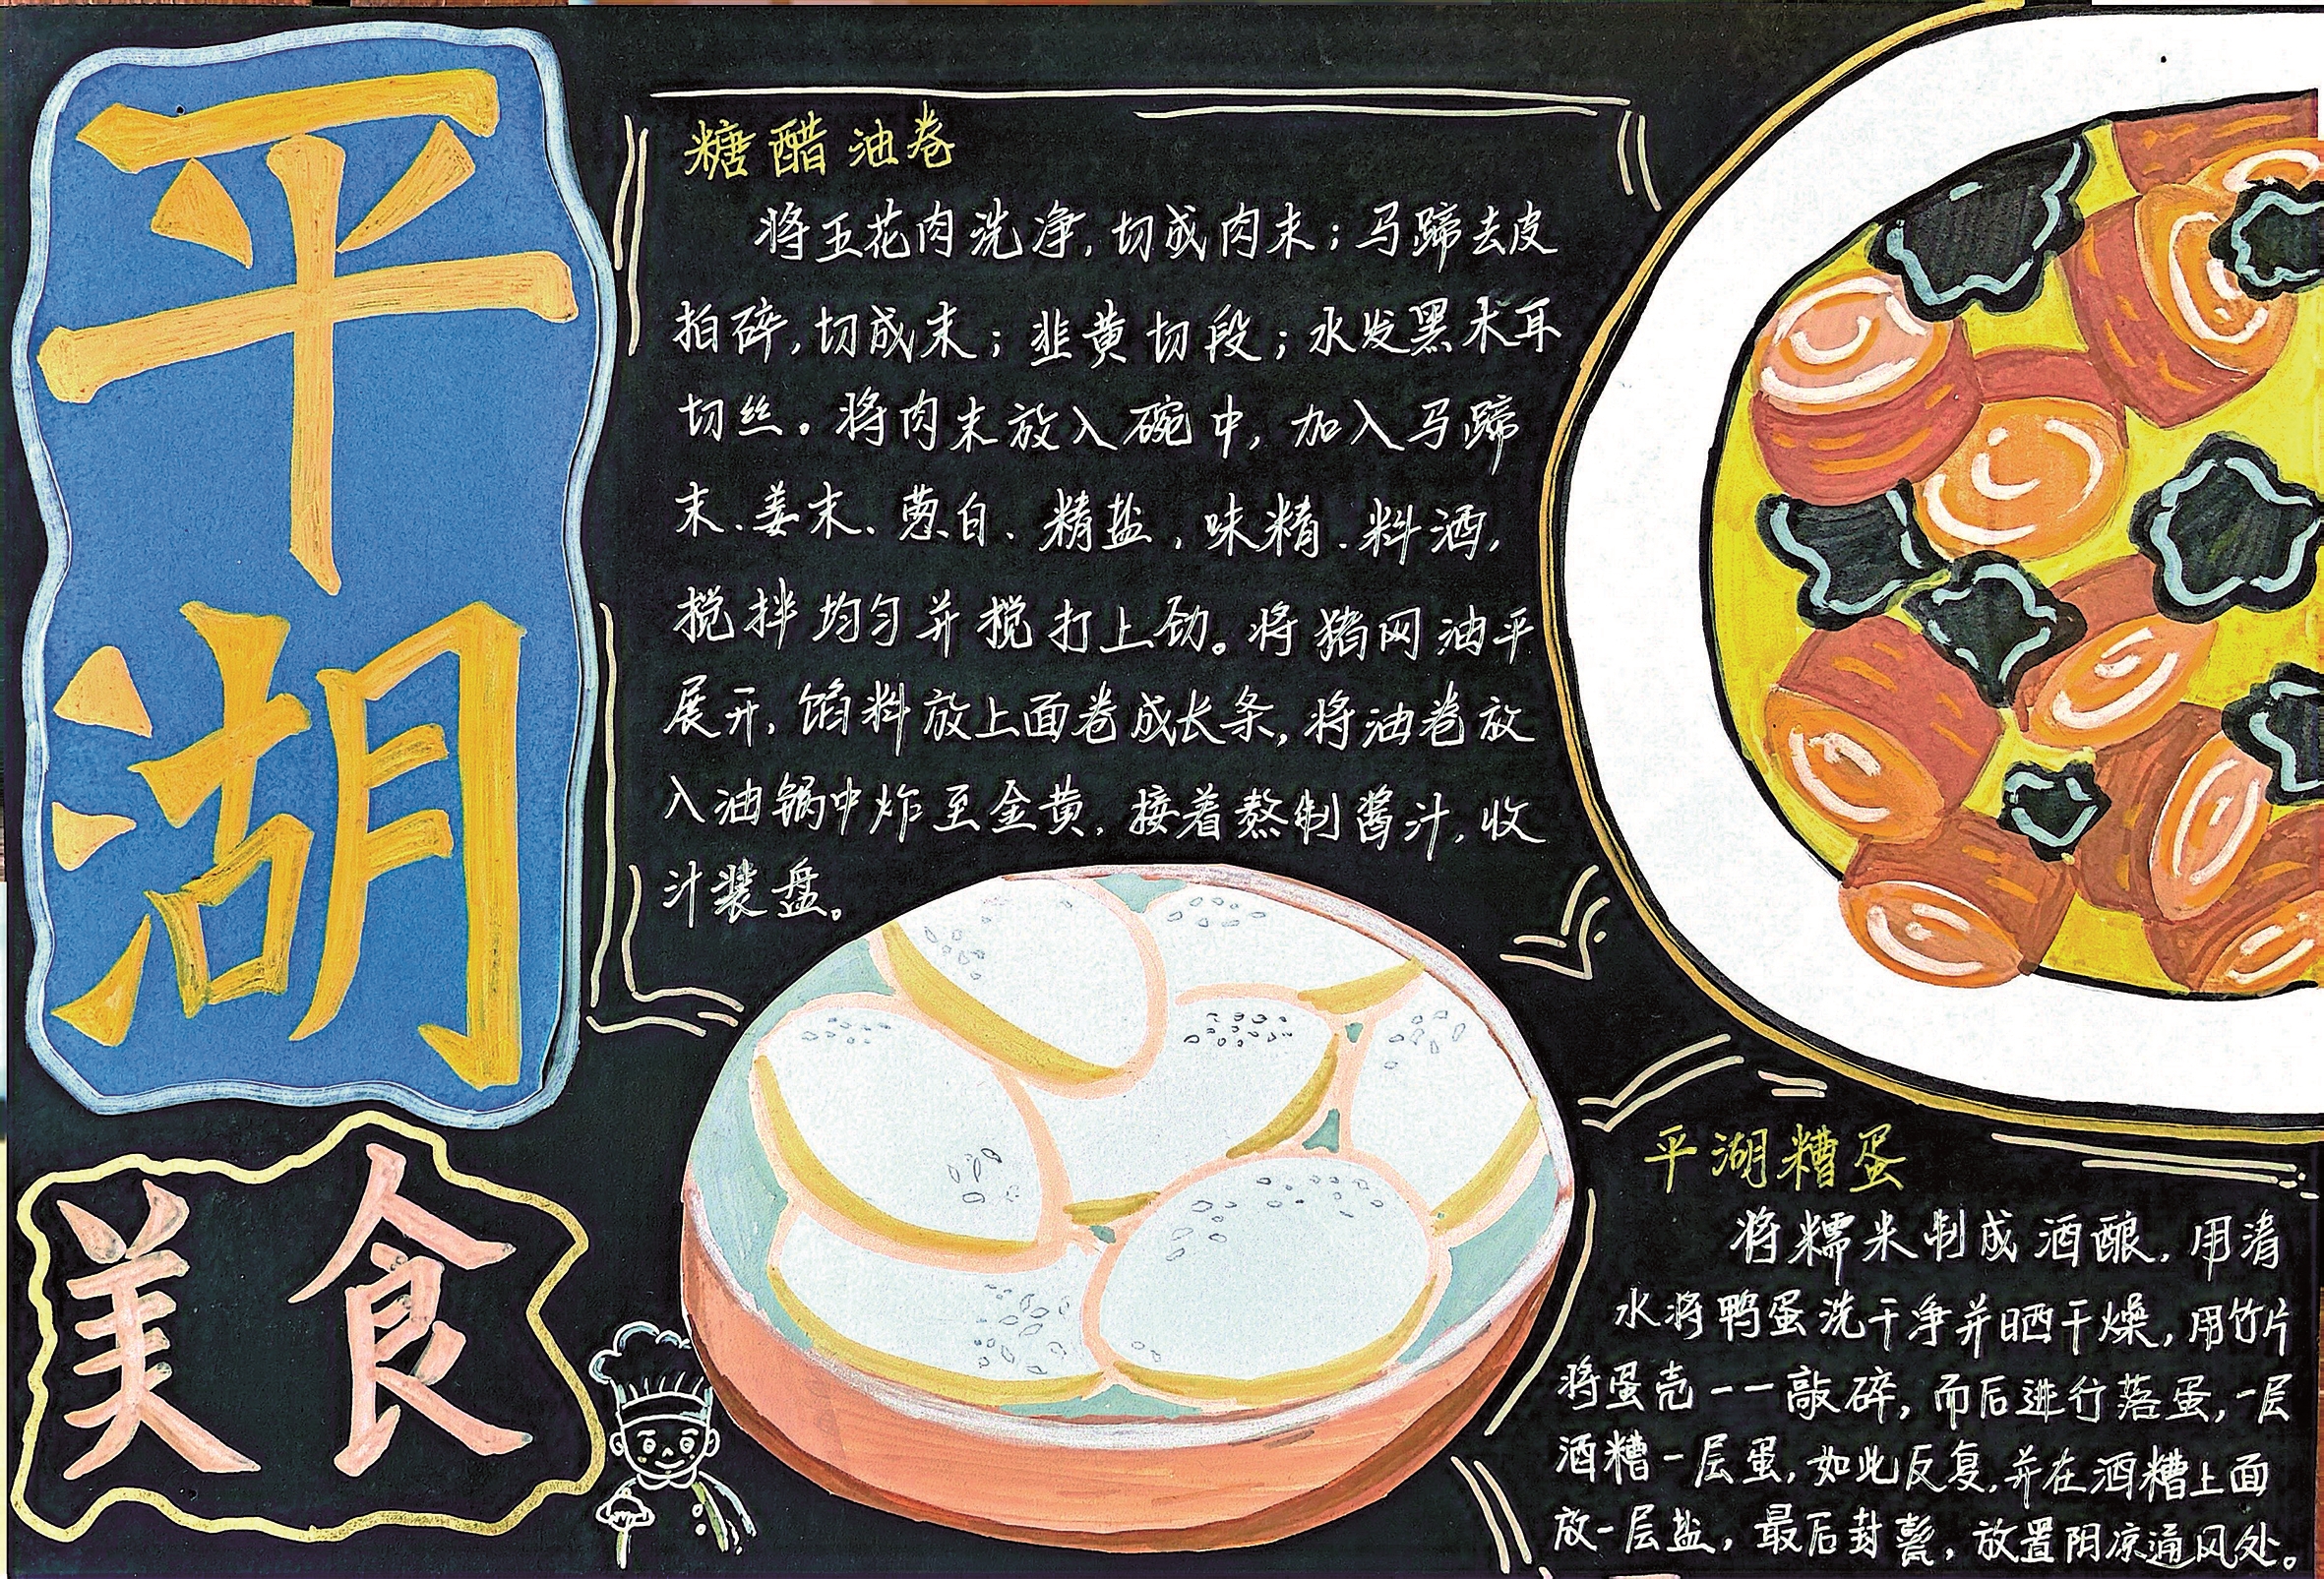 平湖
美食
糖醋油卷
将五花肉洗净,切成肉末;马蹄去皮
拍碎,切成末;韭黄切段;水发黑木耳
切丝。将肉末放入碗中,加入马蹄
末、姜末、葱白、精盐、味精、料酒,
搅拌均匀并搅打上劲。将猪网油平
展开,馅料放上面卷成长条,将油卷放
入油锅中炸至金黄,接着熬制酱汁,收
汁装盘。
平湖糟蛋
将糯米制成酒酿,用清
水将鸭蛋洗干净并晒干燥,用竹片
将蛋壳一一敲碎,而后进行落蛋,一层
酒糟一层蛋,如此反复,并在酒糟上面
放一层盐,最后封甏,放置阴凉通风处。